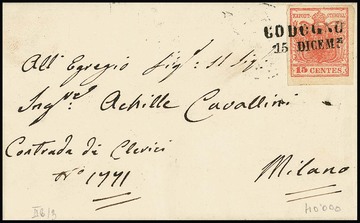 CODOGNO
15 DICEME
15 CENTES.
All' Egregio Sig.r Il Sig.
Ing.re Achille Cavallini
Contrada di Clerici
N.o 1771
Milano
40'000